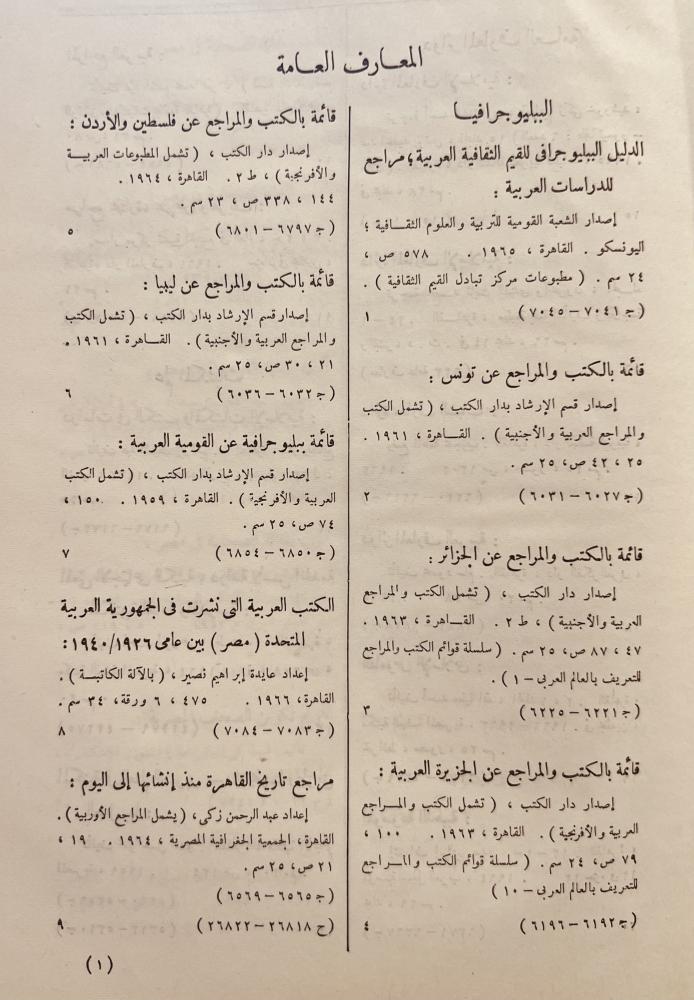 المعارف العامة
الببليوجرافيا
الدليل الببليوجرافى للقيم الثقافية العربية؛ مراجع
للدراسات العربية :
إصدار الشعبة القومية للتربية والعلوم الثقافية ؛
اليونسكو . القاهرة ، ١٩٦٥ . ٥٧٨ ص ،
٢٤ سم . ( مطبوعات مركز تبادل القيم الثقافية ) .
( ج ٧٠٤١ – ٧٠٤٥ ) ١
قائمة بالكتب والمراجع عن تونس :
إصدار قسم الإرشاد بدار الكتب ، ( تشمل الكتب
والمراجع العربية والأجنبية ) . القاهرة ، ١٩٦١ .
٢٥ ، ٤٢ ص ، ٢٥ سم .
( ج ٦٠٢٧ – ٦٠٣١ ) ٢
قائمة بالكتب والمراجع عن الجزائر :
إصدار دار الكتب ، ( تشمل الكتب والمراجع
العربية والأجنبية ) ، ط ٢ . القاهرة ، ١٩٦٣ .
٤٧ ، ٨٧ ص ، ٢٥ سم . ( سلسلة قوائم الكتب والمراجع
للتعريف بالعالم العربى – ١ ) .
( ج ٦٢٢١ – ٦٢٢٥ ) ٣
قائمة بالكتب والمراجع عن الجزيرة العربية :
إصدار دار الكتب ، ( تشمل الكتب والمراجع
العربية والأفرنجية ) . القاهرة ، ١٩٦٣ . ١٠٠ ،
٧٩ ص ، ٢٤ سم . ( سلسلة قوائم الكتب والمراجع
للتعريف بالعالم العربى – ١٠ )
( ج ٦١٩٢ – ٦١٩٦ ) ٤
قائمة بالكتب والمراجع عن فلسطين والأردن :
إصدار دار الكتب ، ( تشمل المطبوعات العربية
والأفرنجية ) ، ط ٢ . القاهرة ، ١٩٦٤ .
١٤٤ ، ٣٣٨ ص ، ٢٣ سم .
( ج ٦٧٩٧ – ٦٨٠١ ) ٥
قائمة بالكتب والمراجع عن ليبيا :
إصدار قسم الإرشاد بدار الكتب ، ( تشمل الكتب
والمراجع العربية والأجنبية ) . القاهرة ، ١٩٦١ .
٢١ ، ٣٠ ص ، ٢٥ سم .
( ج ٦٠٣٢ – ٦٠٣٦ ) ٦
قائمة ببليوجرافية عن القومية العربية :
إصدار قسم الإرشاد بدار الكتب ، ( تشمل الكتب
العربية والأفرنجية ) . القاهرة ، ١٩٥٩ . ١٥٠ ،
٧٤ ص ، ٢٥ سم .
( ج ٦٨٥٠ – ٦٨٥٤ ) ٧
الكتب العربية التى نشرت فى الجمهورية العربية
المتحدة ( مصر ) بين عامى ١٩٢٦ / ١٩٤٠ :
إعداد عايدة إبراهيم نصير ، ( بالآلة الكاتبة ) .
القاهرة ، ١٩٦٦ . ٤٧٥ ، ٦ ورقة ، ٣٤ سم .
( ج ٧٠٨٣ – ٧٠٨٤ ) ٨
مراجع تاريخ القاهرة منذ إنشائها إلى اليوم :
إعداد عبد الرحمن زكى ، ( يشمل المراجع الأوربية ) .
القاهرة ، الجمعية الجغرافية المصرية ، ١٩٦٤ . ١٩ ،
٢١ ص ، ٢٥ سم .
( ج ٦٥٦٥ – ٦٥٦٩ )
( ح ٢٦٨١٨ – ٢٦٨٢٢ ) ٩
( ١ )